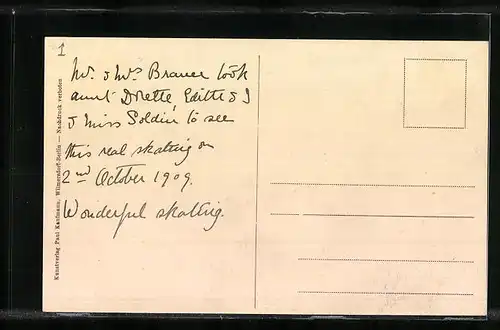 1
Mr. & Mrs. Brauer took
aunt Dorette, Edith & I
& Miss Soldin to see
this real skating on
2nd October 1909.
Wonderful skating.
Kunstverlag Paul Kaufmann, Wilmersdorf-Berlin — Nachdruck verboten